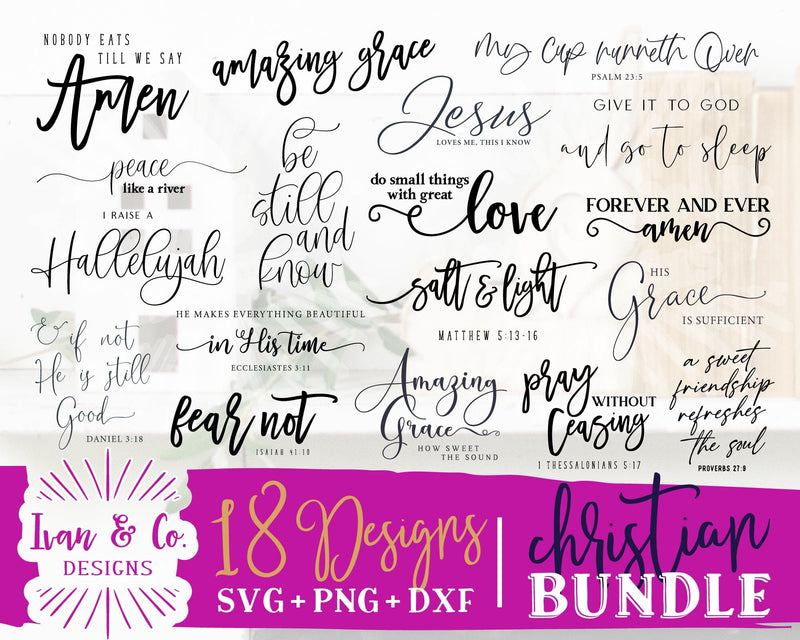 NOBODY EATS
TILL WE SAY
Amen
amazing grace
my cup runneth Over
PSALM 23:5
Jesus
LOVES ME, THIS I KNOW
GIVE IT TO GOD
and go to sleep
peace
like a river
be
still
and
know
do small things
with great
love
FOREVER AND EVER
amen
I RAISE A
Hallelujah
salt & light
MATTHEW 5:13-16
HIS
Grace
IS SUFFICIENT
& if not
He is still
Good
DANIEL 3:18
HE MAKES EVERYTHING BEAUTIFUL
in His time
ECCLESIASTES 3:11
fear not
ISAIAH 41:10
Amazing
Grace
HOW SWEET
THE SOUND
pray
WITHOUT
Ceasing
1 THESSALONIANS 5:17
a sweet
friendship
refreshes
the soul
PROVERBS 27:9
Ivan & Co.
DESIGNS
18 Designs
SVG + PNG + DXF
christian
BUNDLE